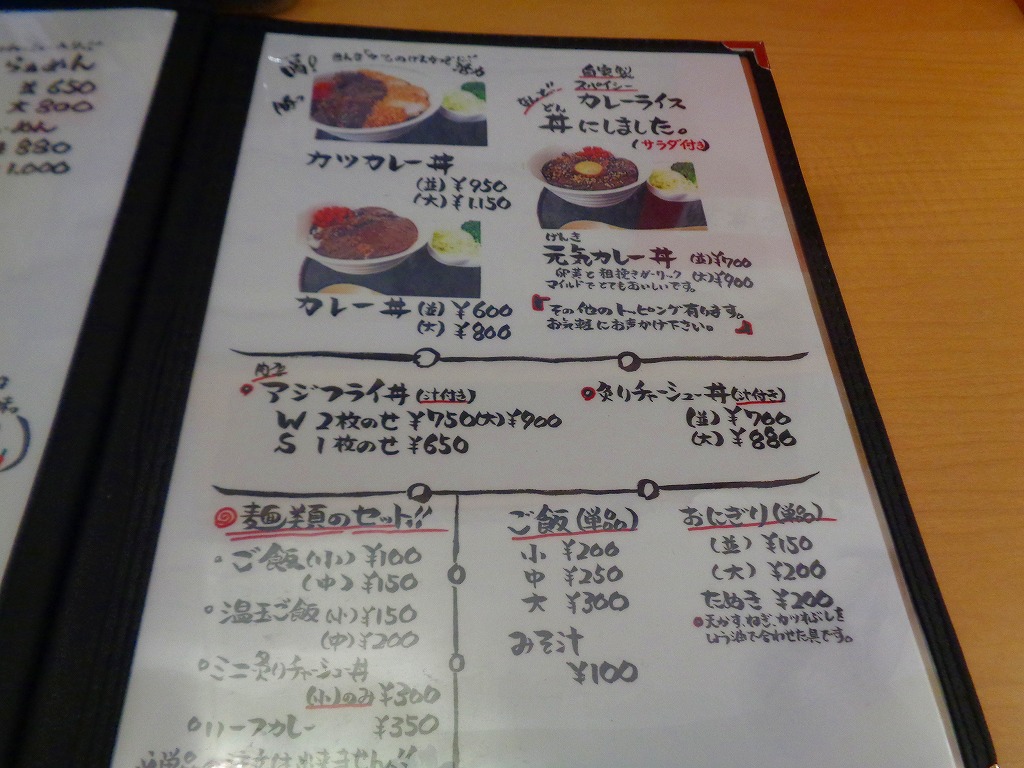 らぁめん
並 650
大 800
880
1,000
カツカレー丼
(並) ¥950
(大) ¥1,150
カレー丼 (並) ¥600
(大) ¥800
自家製
スパイシー
カレーライス
どん
丼にしました。
(サラダ付き)
げんき
元気カレー丼 (並)¥700
卵黄と粗挽きガーリック (大)¥900
マイルドでとてもおいしいです。
『その他のトッピング有ります。
お気軽にお声かけ下さい。』
アジフライ丼(汁付き)
W 2枚のせ ¥750(大)¥900
S 1枚のせ ¥650
炙りチャーシュー丼(汁付き)
(並) ¥700
(大) ¥880
麺類のセット!!
・ご飯(小) ¥100
(中) ¥150
温玉ご飯(小) ¥150
(中) ¥200
ミニ炙りチャーシュー丼
(小)のみ ¥300
ハーフカレー ¥350
ご飯(単品)
小 ¥200
中 ¥250
大 ¥300
みそ汁
¥100
おにぎり(単品)
(並) ¥150
(大) ¥200
たぬき ¥200
天かす、ねぎ、カツオぶしを
しょう油で合わせた具です。